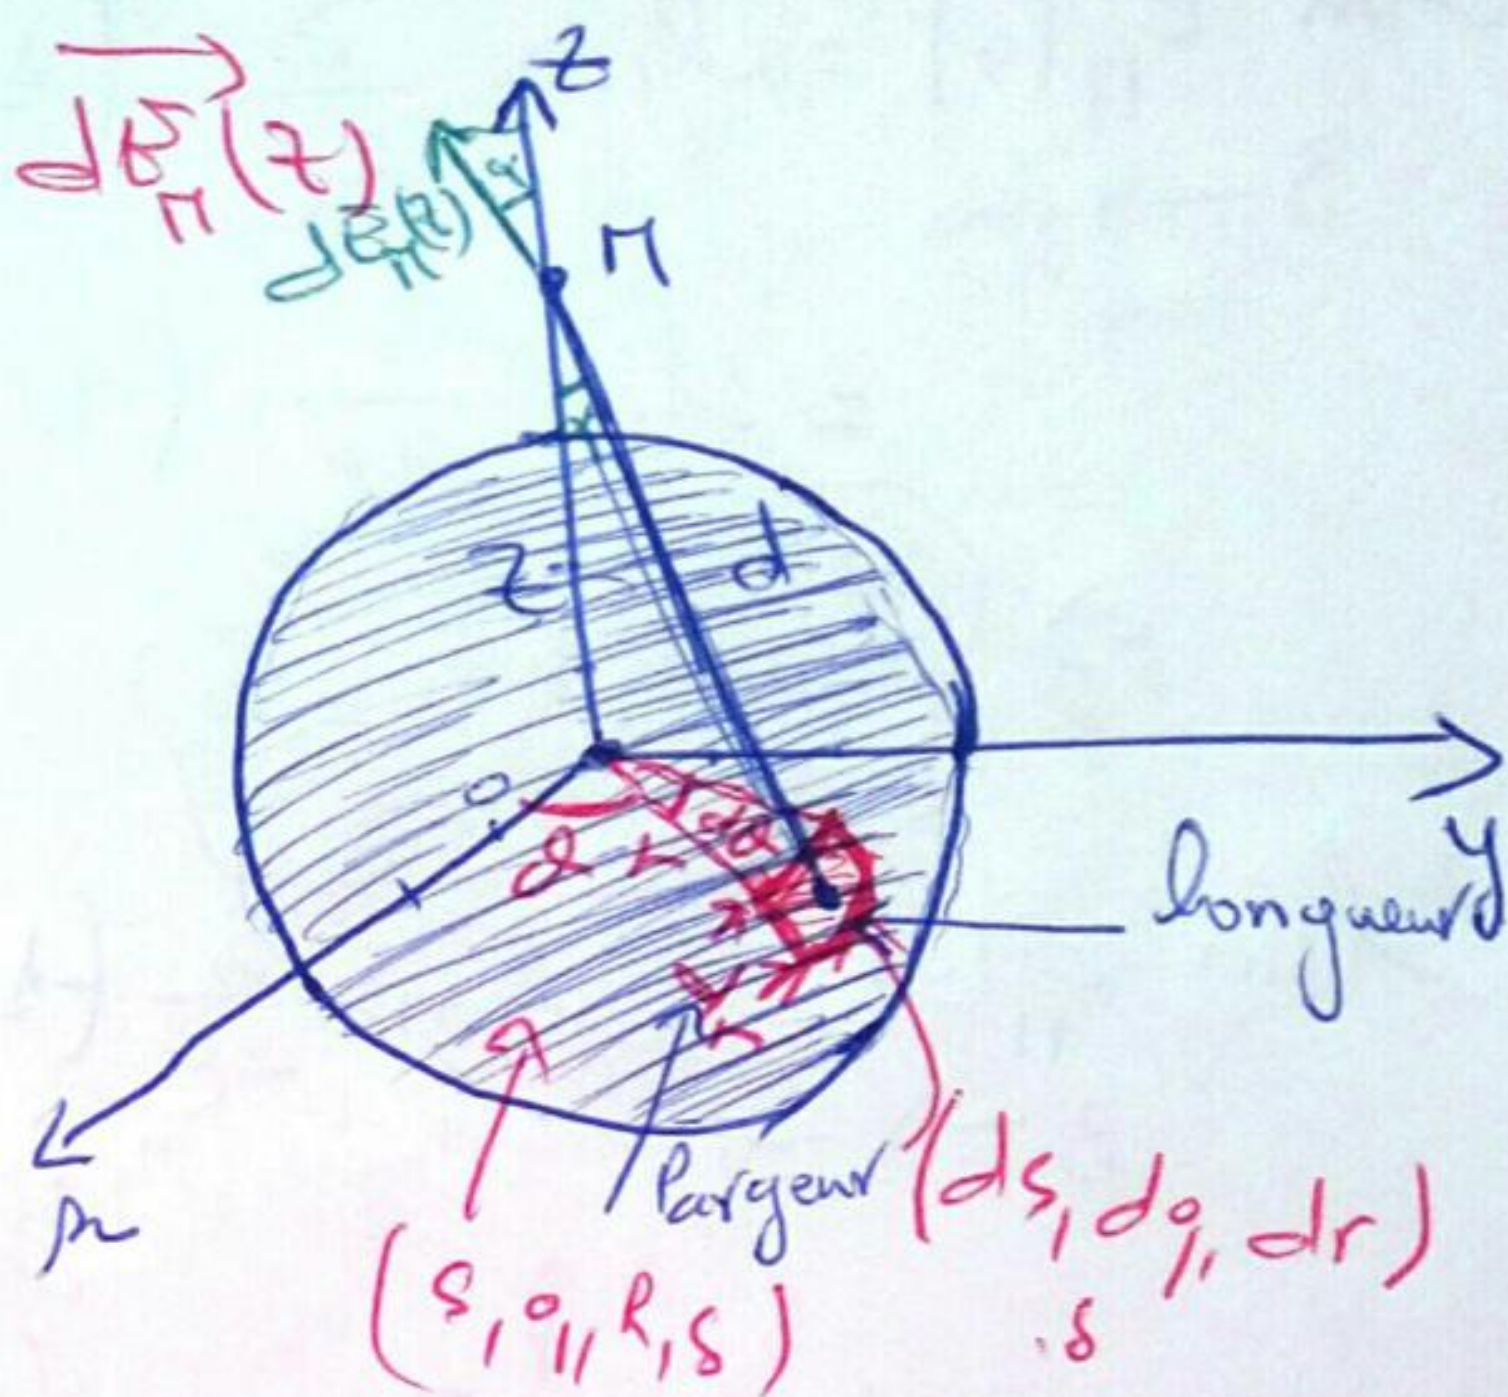 z
dE_M(z)
dE_M(z)
α
M
α
z
d
O
θ
dθ
y
longueur
r
x
largeur
(dS, dq, dr)
(S, q, R, δ)
δ